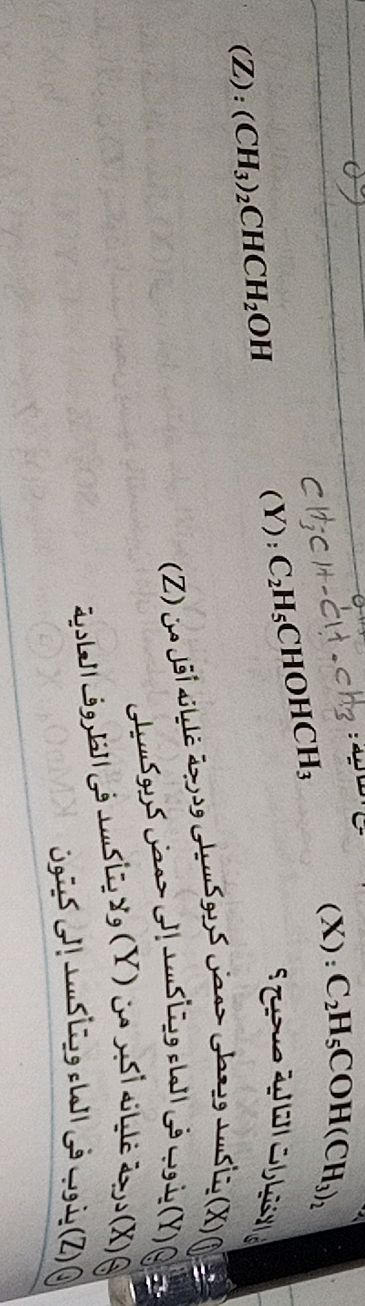 (X) : C₂H₅COH(CH₃)₂ (Y) : C₂H₅CHOHCH₃ (Z) : (CH₃)₂CHCH₂OH
الاختيارات التالية صحيح ؟
أ (X) يتأكسد ويعطى حمض كربوكسيلى ودرجة غليانه أقل من (Z)
(Y) يذوب فى الماء ويتأكسد إلى حمض كربوكسيلى
(X) درجة غليانه أكبر من (Y) ولا يتأكسد فى الظروف العادية
(Z) يذوب فى الماء ويتأكسد إلى كيتون